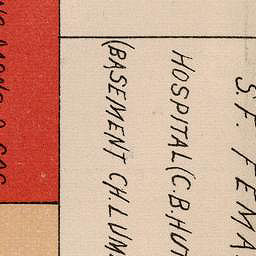 S.F. FEMA
HOSPITAL (C.B. HUT
(BASEMENT CH. LUM